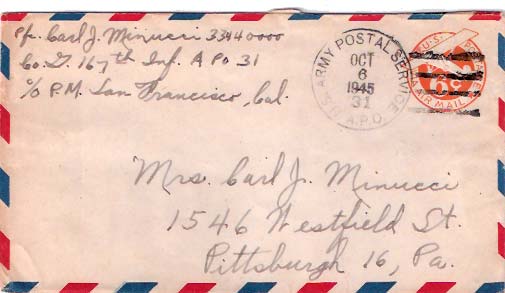 Pfc Carl J. Minucci 33440000
Co. G. 167th Inf. A PO 31
c/o P.M. San Francisco, Cal.
U.S. ARMY POSTAL SERVICE
OCT
6
1945
31
A.P.O.
U.S. POSTAGE
6¢
VIA AIR MAIL
Mrs. Carl J. Minucci
1546 Westfield St.
Pittsburgh 16, Pa.